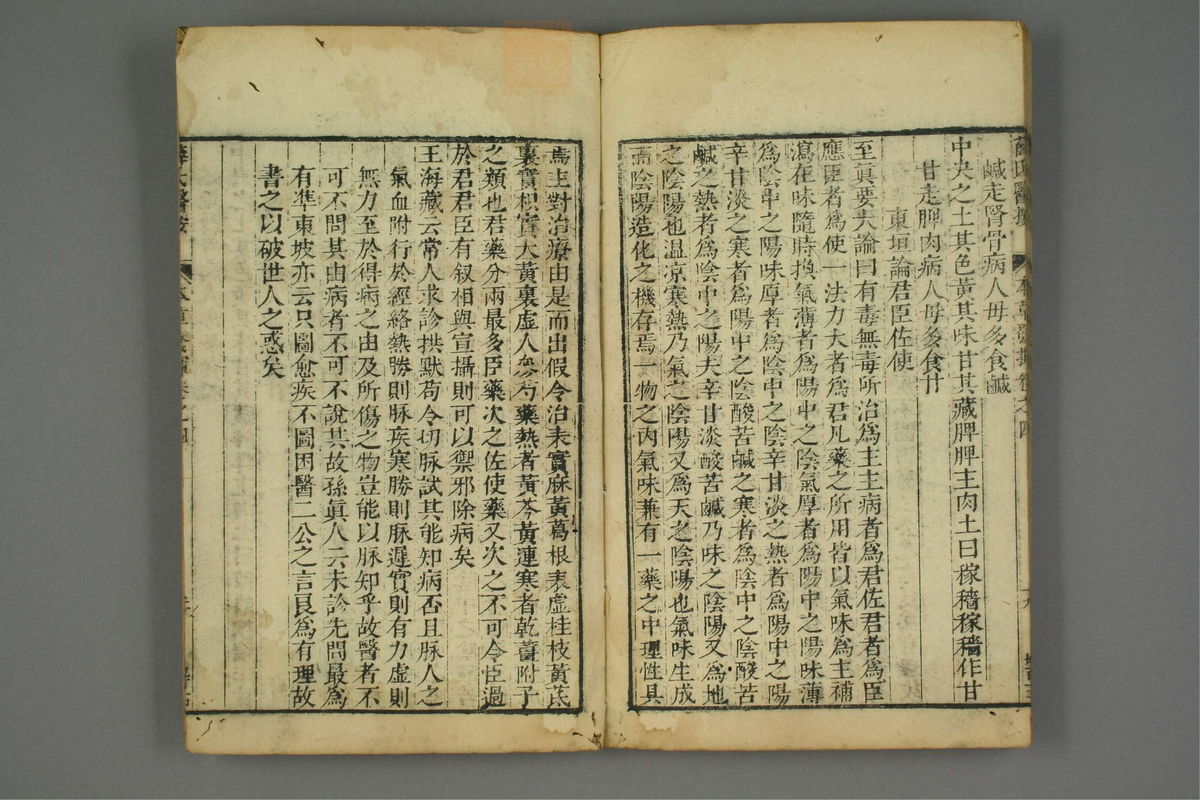 薛氏醫按 本草發揮卷之四
鹹走腎骨病人毋多食鹹
中央之土其色黃其味甘其藏脾脾主肉土曰稼穡稼穡作甘
甘走脾肉病人毋多食甘
東垣論君臣佐使
至眞要大論曰有毒無毒所治爲主主病者爲君佐君者爲臣
應臣者爲使一法力大者爲君凡藥之所用皆以氣味爲主補
瀉在味隨時換氣薄者爲陽中之陰氣厚者爲陽中之陽味薄
爲陰中之陽味厚者爲陰中之陰辛甘淡之熱者爲陽中之陽
辛甘淡之寒者爲陽中之陰酸苦鹹之寒者爲陰中之陰酸苦
鹹之熱者爲陰中之陽夫辛甘淡酸苦鹹乃味之陰陽又爲地
之陰陽也温凉寒熱乃氣之陰陽又爲天之陰陽也氣味生成
而陰陽造化之機存焉一物之内氣味兼有一藥之中理性具
焉主對治療由是而出假令治表實麻黃葛根表虛桂枝黃茋
裏實枳實大黃裏虛人參芍藥熱者黃芩黃連寒者乾薑附子
之類也君藥分兩最多臣藥次之佐使藥又次之不可令臣過
於君君臣有叙相與宣攝則可以禦邪除病矣
王海藏云常人求診拱默苟令切脉試其能知病否且脉人之
氣血附行於經絡熱勝則脉疾寒勝則脉遲實則有力虛則
無力至於得病之由及所傷之物豈能以脉知乎故醫者不
可不問其由病者不可不說其故孫眞人云未診先問最爲
有準東坡亦云只圖愈疾不圖困醫二公之言良爲有理故
書之以破世人之惑矣
薛氏醫按 本草發揮卷之四